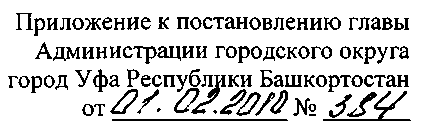 Приложение к постановлению главы
Администрации городского округа
город Уфа Республики Башкортостан
от 01.02.2010 № 384